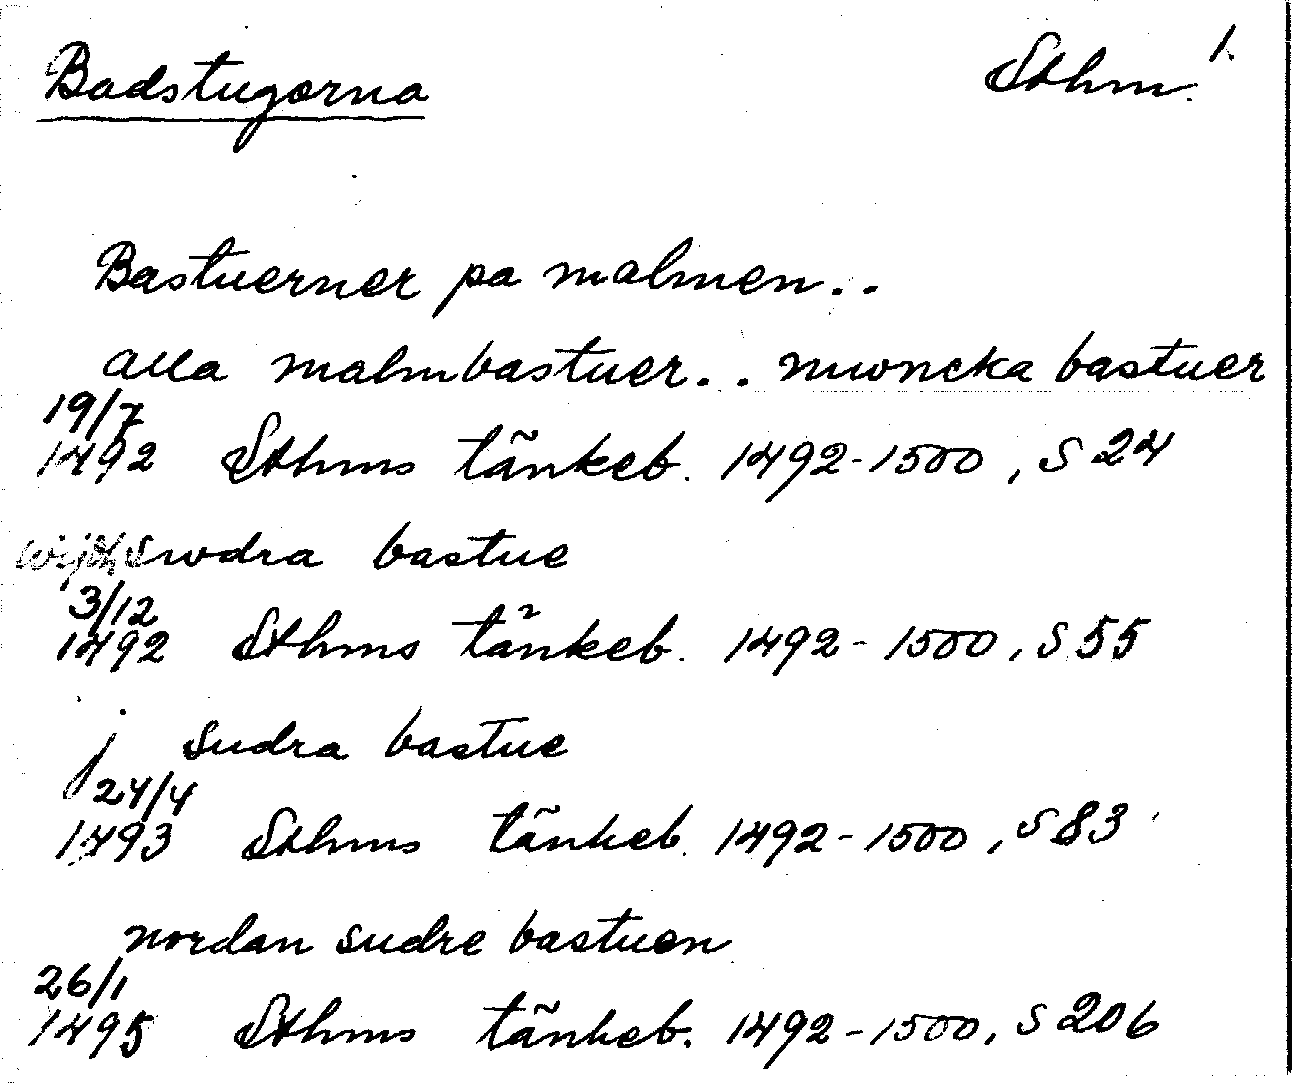 Badstugorna Sthm. 1.
Bastuerner pa malmen..
alla malmbastuer.. muoncka bastuer
19/7
1492 Sthms tänkeb. 1492-1500, S 24
swdra bastue
3/12
1492 Sthms tänkeb. 1492-1500, S 55
j sudra bastue
24/4
1493 Sthms tänkeb. 1492-1500, S 83
nordan sudre bastuen
26/1
1495 Sthms tänkeb. 1492-1500, S 206